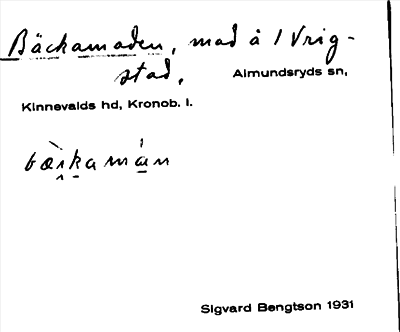 Bäckamaden, mad å 1 Vrig-
stad,
Almundsryds sn,
Kinnevalds hd, Kronob. l.
Sigvard Bengtson 1931